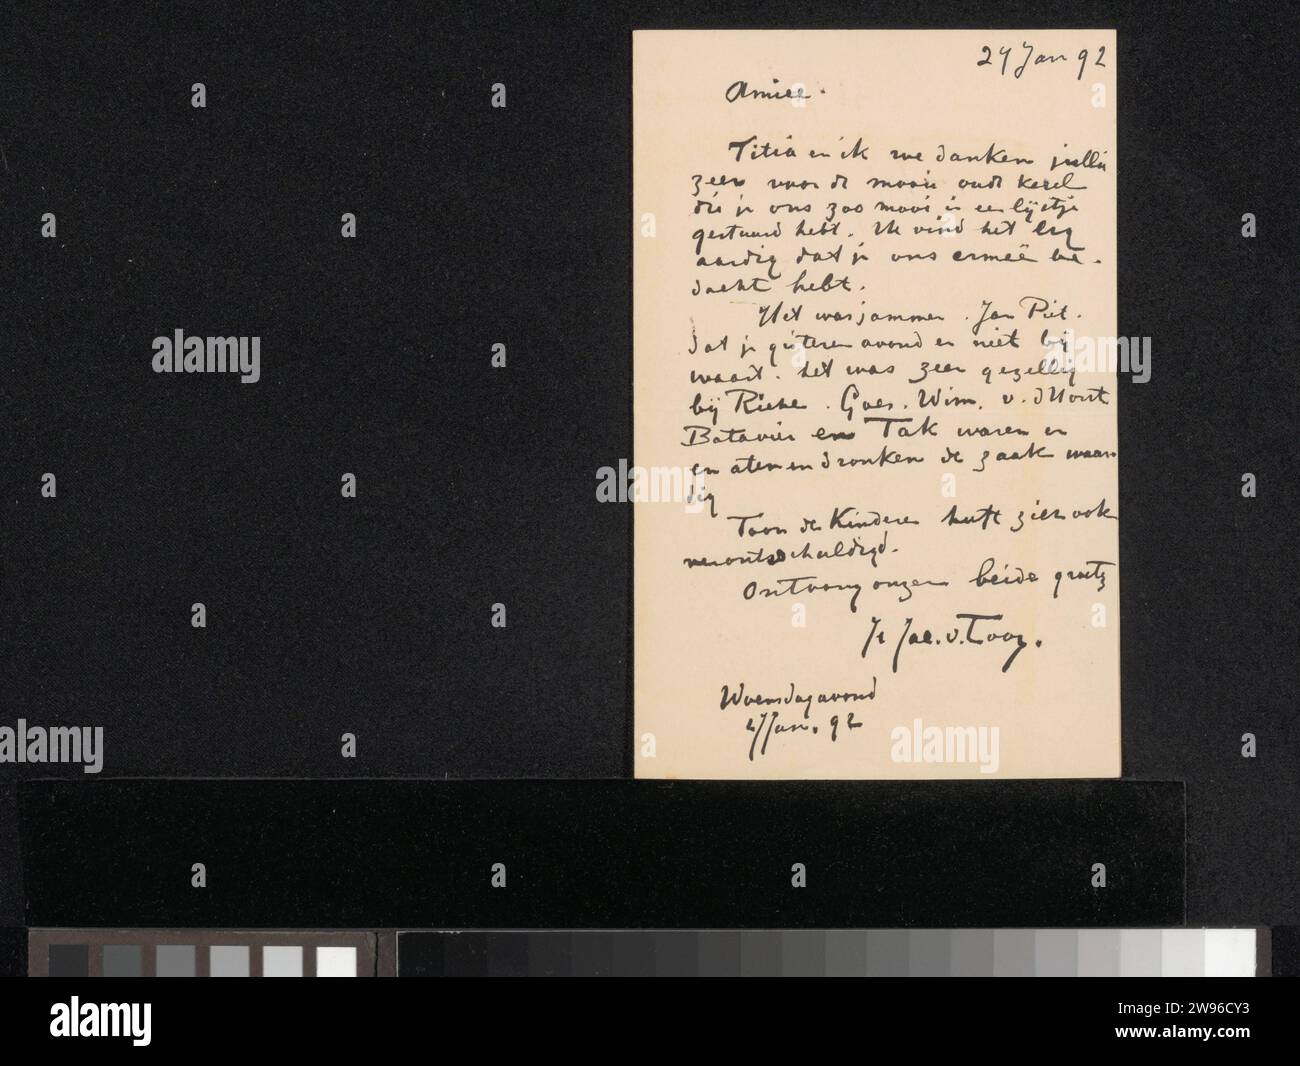 27 Jan 92
Amice.
Titia en ik we danken jullie
zeer voor de mooie oude kerel
die je ons zoo mooi in een lijstje
gestuurd hebt. Ik vind het erg
aardig dat je ons ermeê be-
dacht hebt.
Het was jammer. Jan Piet.
dat je gisteren avond er niet bij
waart. het was zeer gezellig
bij Rieke. Goes. Wim. v. d Horst
Batavier en Tak waren er
en aten en dronken de zaak waar
dig
Toon der Kinderen heeft zien ook
verontschuldigd.
Ontvang onzen beide groetz
Jac. v. Looy.
Woensdagavond
27 Jan. 92
alamy
Image ID: 2W96CY3
www.alamy.com